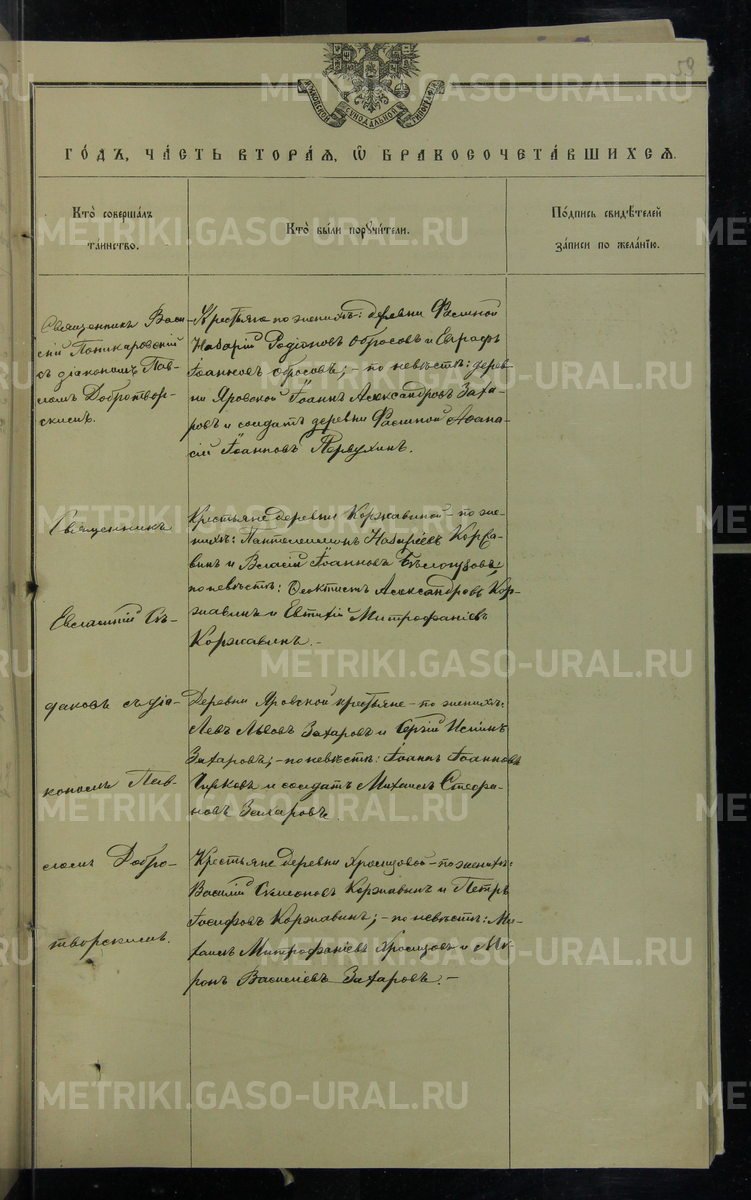 59
МОСКОВСКОЙ СѴНОДАЛЬНОЙ ТИПОГРАФІИ
ГО́ДЪ, ЧА́СТЬ ВТОРА́Я, Ѡ БРАКОСОЧЕТА́ВШИХСЯ.
Кто̀ соверша́лъ
та́инство.
Кто̀ бы́ли порꙋчи́тели.
По́дпись свидѣ́телей
за́писи по жела́нію.
Священникъ Васи-
лій Поникаровскій
съ діакономъ Пав-
ломъ Добротвор-
скимъ.
Крестьяне по женихѣ: деревни
Назарій Родіоновъ Обросовъ и Евграфъ
Іоанновъ Обросовъ; - по невѣстѣ: дерев-
ни Яровской Іоаннъ Александровъ Заха-
ровъ и солдатъ деревни Аѳана-
сій Іоанновъ Первухинъ.
Священникъ
Евлампій Су-
даковъ съ діа-
кономъ Пав-
ломъ Добро-
творскимъ.
Крестьяне деревни Коржавиной - по же-
нихѣ: Пантелеимонъ Назаріевъ Коржа-
винъ и Власій Іоанновъ Бѣлоусовъ;
по невѣстѣ: Ѳеоктистъ Александровъ Кор-
жавинъ и Евтихій Митрофаніевъ
Коржавинъ. -
Деревни Яровской крестьяне - по женихѣ:
Левъ Львовъ Захаровъ и Сергій
Захаровъ; - по невѣстѣ: Іоаннъ Іоанновъ
Чирковъ и солдатъ Михаилъ Стефа-
новъ Захаровъ.
Крестьяне деревни Храмцовой - по женихѣ:
Василій Симеоновъ Коржавинъ и Петръ
Іосифовъ Коржавинъ; - по невѣстѣ: Ми-
хаилъ Митрофаніевъ Храмцовъ и Ми-
ронъ Василіевъ Захаровъ. -
METRIKI.GASO-URAL.RU